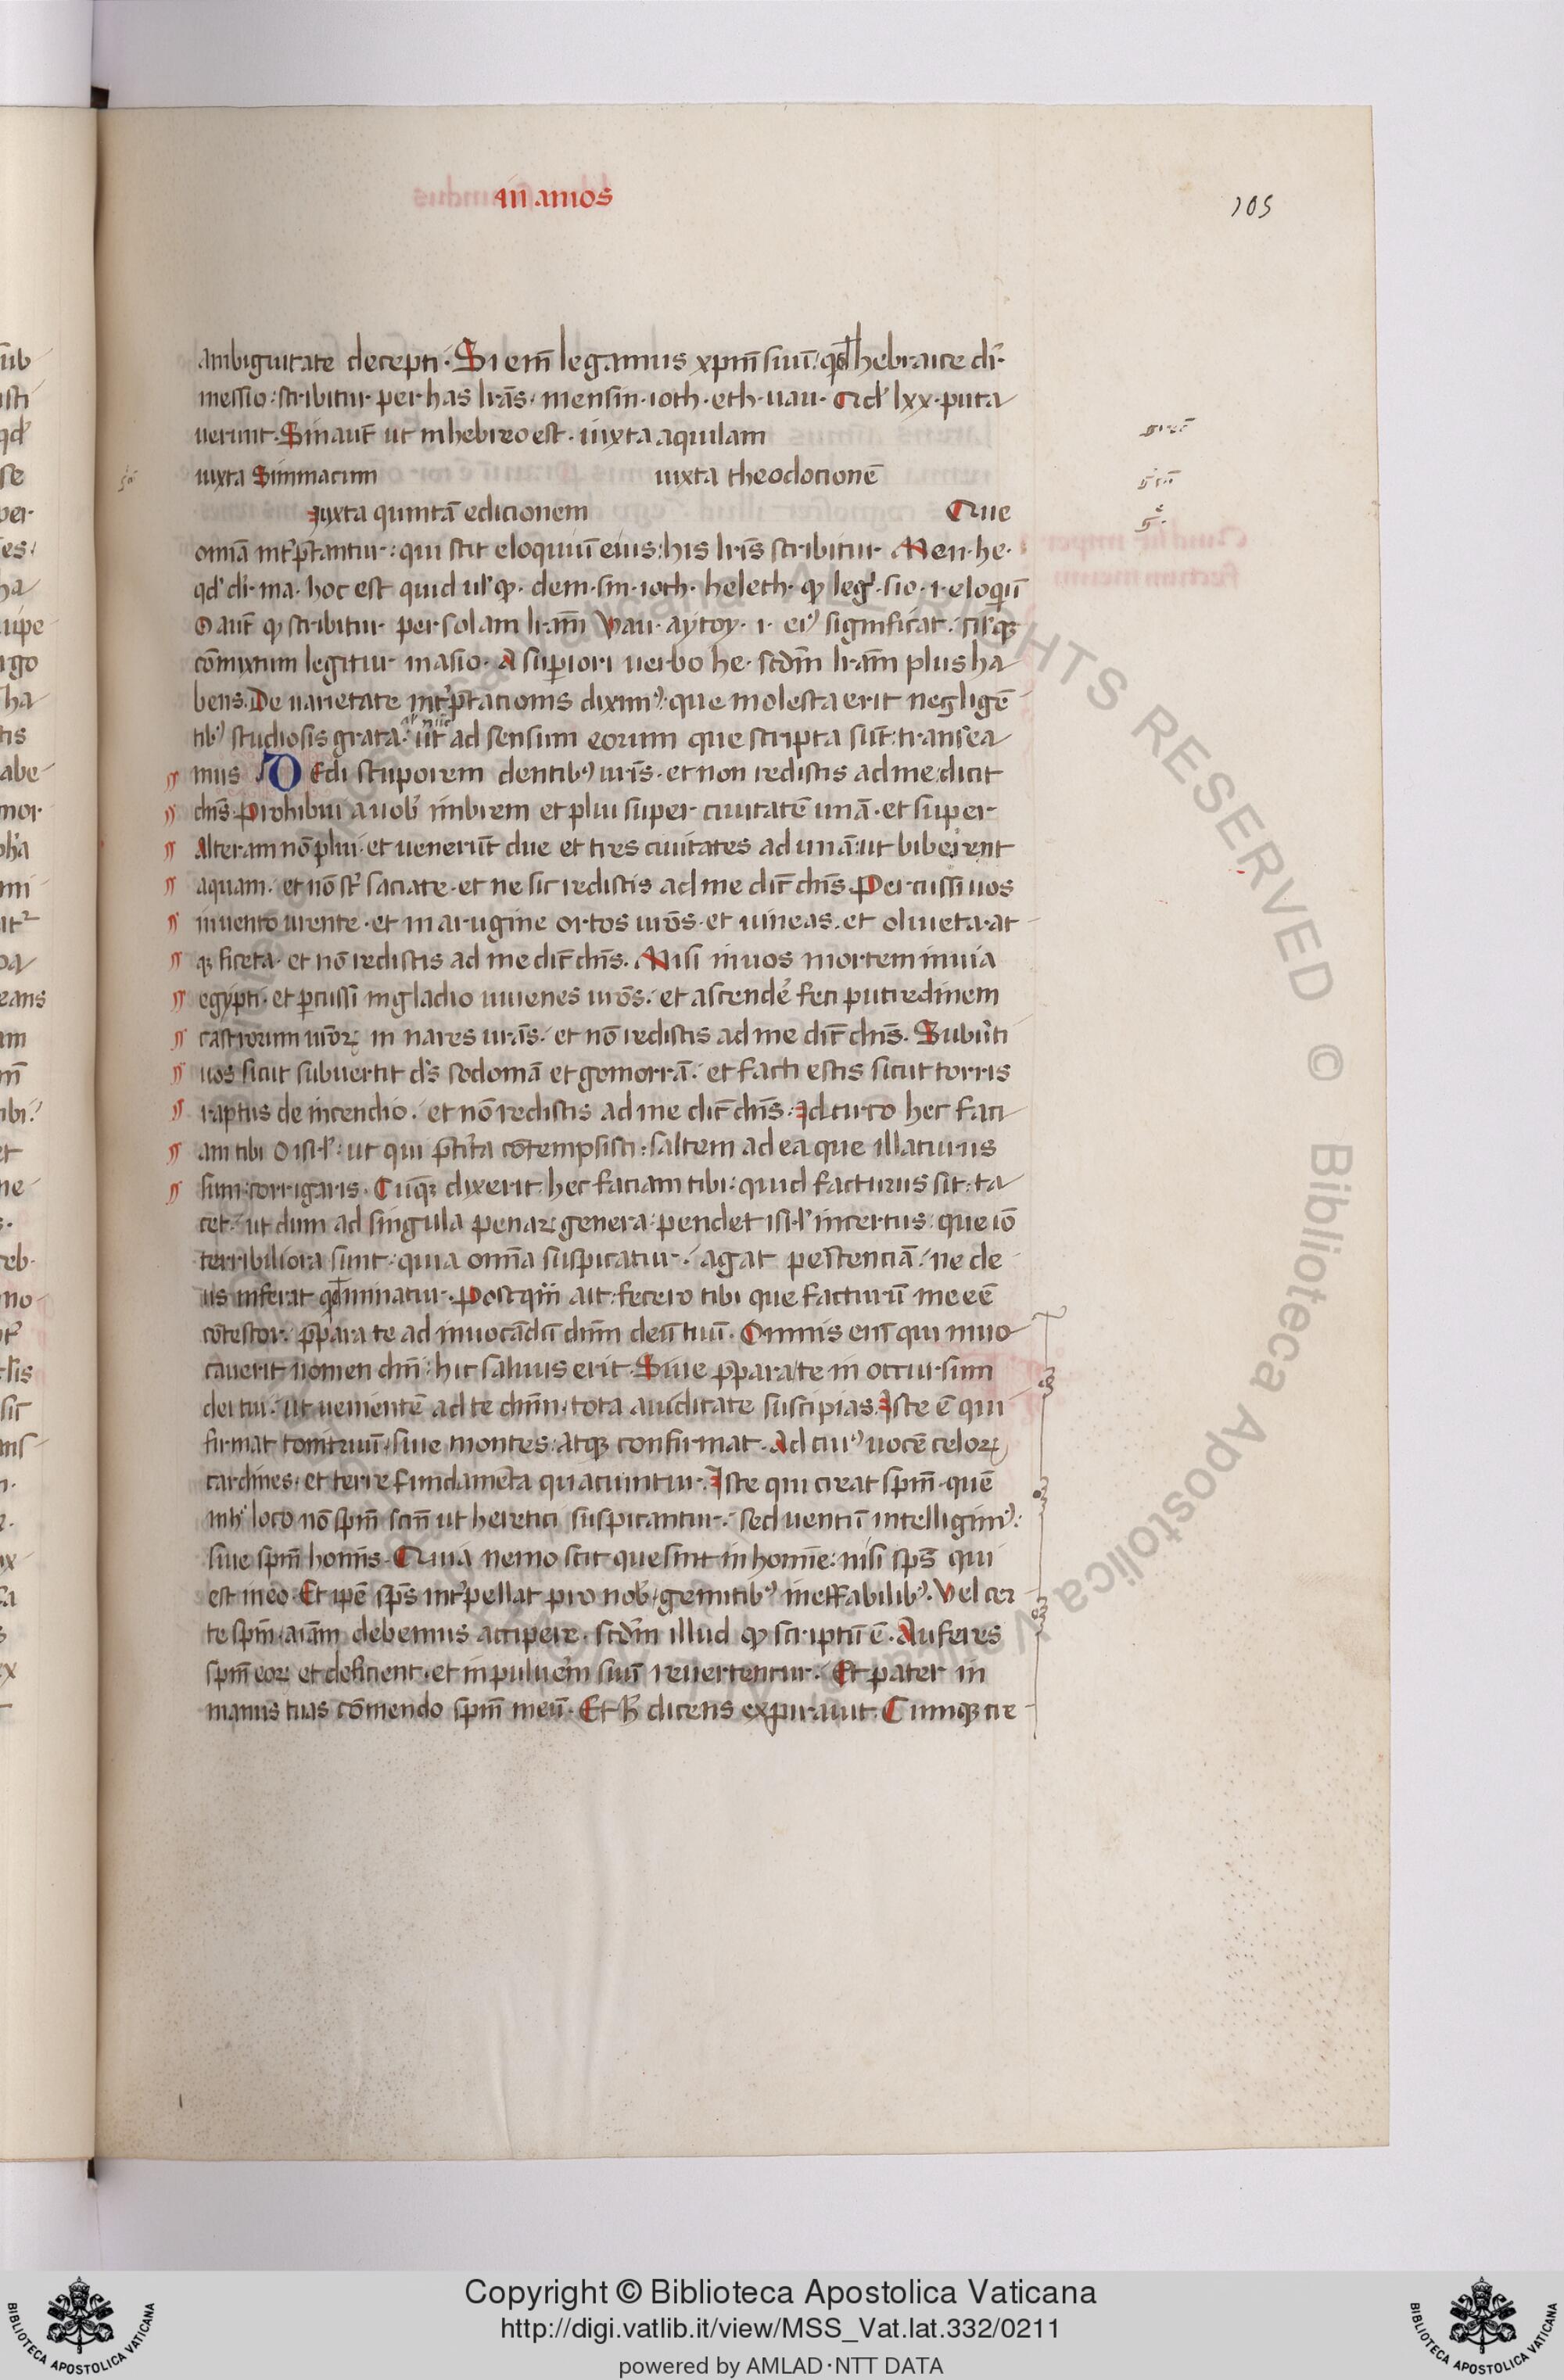 In amos
105
ambiguitate decepti. Si em̄ legamus xp̄m suū: qđ hebraice dr̄.
messio: scribitur per has lr̄as. mensin. ioth. eth. uau. Qd' lxx. puta
uerunt. Sin aut̄ ut in hebreo est. iuxta aquilam
iuxta Simmacum iuxta theodotionē
Iuxta quintā editionem Que
omīa int'p̄tantur: qui scit eloquiū eius: his lr̄is scribitur. Men. he.
qd' dr. ma. hoc est quid ul' qđ. dem. sin. ioth. heleth. qđ legr̄. sio. i. eloquiū
O aut̄ qđ scribitur per solam lr̄am Vau. aytoy. i. ei' significat. sicq;
cōmixtum legitur masio. A superiori uerbo he. scd̄m lr̄am plus ha
bens. De uarietate int'p̄tationis diximus: que molesta erit negligē
tib' studiosis grata. ut ad sensum eorum que scripta sūt: transea
mus. Dedi stuporem dentib' ur̄is. et non redistis ad me: dicit
dn̄s. Prohibui a uob' imbrem et plui super ciuitatē unā. et super
alteram nō plui. et uenerūt due et tres ciuitates ad unā: ut biberent
aquam. et nō st̄ saciate. et ne sic redistis ad me dic̄ dn̄s. Percussi uos
in uento urente. et in arugine ortos ur̄os. et uineas. et oliueta. at
q; ficeta. et nō redistis ad me dic̄ dn̄s. Misi in uos mortem in uia
egypti. et p̄cussi in gladio iuuenes ur̄os. et ascendē feci putredinem
castrorum ur̄orꝝ in nares ur̄as. et nō redistis ad me dic̄ dn̄s. Subu'ti
uos sicut subuertit d's sodomā et gomorrā. et facti estis sicut torris
raptus de incendio. et nō redistis ad me dic̄ dn̄s. Idcirco hec faci
am tibi o isr̄l: ut qui p̄t'ita cōtempsisti: saltem ad ea que illaturus
sum: corrigaris. Cūq; dixerit: hec faciam tibi: quid facturus sit: ta
cet: ut dum ad singula penaꝝ genera: pendet isr̄l incertus: que iō
terribiliora sunt: quia omīa suspicatur: agat penitenciā: ne de
us inferat qđ minatur. Postq̄m ait: fecero tibi que facturū me eē
cōtestor: p̄para te ad inuocādū dn̄m deū tuū. Omnis eni qui inuo
cauerit nomen dn̄i: hic saluus erit. Siue p̄para te in occursum
dei tui: ut uenientē ad te dn̄m: tota auiditate suscipias. Iste ē qui
firmat tonitruū: siue montes: atq; confirmat. Ad cui' uocē celoꝝ
cardines: et terre fundamēta quatiuntur. Iste qui creat sp̄m. quē
in h' loco nō sp̄m sc̄m ut heretici suspicantur: sed uentū intelligim':
siue sp̄m homīs. Quia nemo scit que sint in homīe: nisi sp̄s qui
est in eo. Et ip̄e sp̄s int'pellat pro nob' gemitib' ineffabilib'. Vel cer
te sp̄m: aīam debemus accipere. scd̄m illud qđ scriptū ē. Auferes
sp̄m eoꝝ et deficient. et in puluerem suū reuertentur. Et pater in
manus tuas cōmendo sp̄m meū. Et h̄ dicens expirauit. Cumq; cre
RIGHTS RESERVED © Biblioteca Apostolica Vaticana
Copyright © Biblioteca Apostolica Vaticana
http://digi.vatlib.it/view/MSS_Vat.lat.332/0211
powered by AMLAD·NTT DATA
BIBLIOTECA APOSTOLICA VATICANA
BIBLIOTECA APOSTOLICA VATICANA